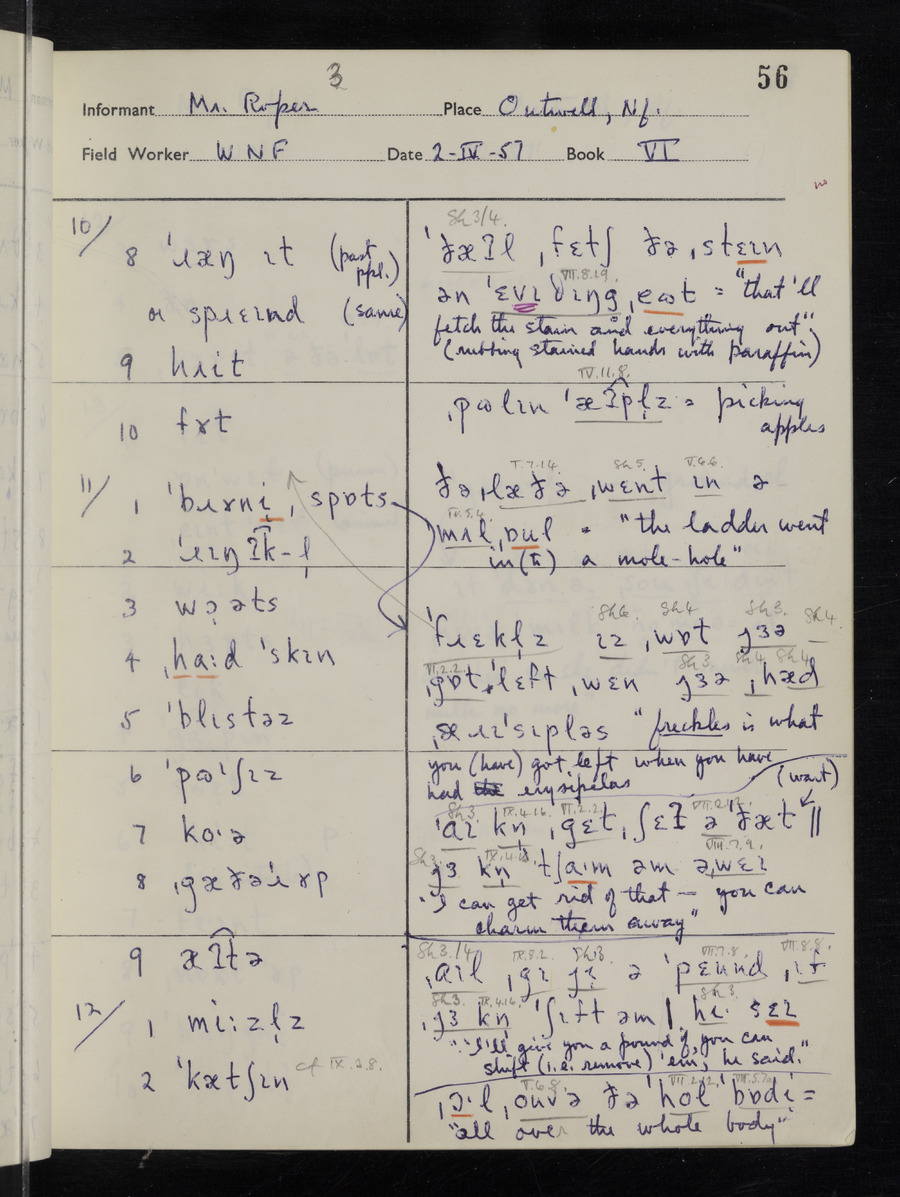 3
56
Informant Mr. Roper Place Outwell, Nf.
Field Worker W N F Date 2-IV-57 Book VI
no
10/
8 ˈɹæŋ ɪt (past ppl.)
or spɹɛɪnd (same)
9 hɹɪt
10 fɤt
11/ 1 ˈbɤɹni̩, spɒts
3 wɔ̣əts
4 ˌhaːd ˈskɪn
5 ˈblɪstəz
7 koˑə
8 ˌgæðəɹ ɤp
9 æʔtə
12/ 1 miːzl̩z
2 ˈkætʃɪn cf IX.2.8.
Sh 3/4.
ˈðæʔl ˌfɛtʃ ðə ˌstɛɪn
VII.8.19.
= "that'll
fetch the stain and everything out"
(rubbing stained hands with paraffin)
IV.11.8.
ˌpʊlɪn ˈæʔpl̩z = picking
apples
I.7.14. Sh 5. V.6.6.
ðə ˌlæðə ˌwɛnt ɪn ə
IV.5.4.
= "the ladder went
in(to) a mole-hole"
Sh 6. Sh 4 Sh 3. Sh 4.
ˈfɹɛkl̩z ɪz ˌwɒt jɜə
VI.2.2. Sh 3. Sh 4 Sh 4
ˌgɒt ˈlɛft ˌwɛn jɜə ˌhæd
"freckles is what
you (have) got left when you have
had the erysipelas
(want)
Sh 3. IX.4.16. VI.2.2. VII.2.12.
ˈaɪ kn̩ ˌgɛt ˌʃɛʔ ə ˈðæt ||
Sh 3. IX.4.16. VIII.7.9.
jɜ kn̩ ˈtʃaːm əm əˌwɛɪ
"I can get rid of that — you can
charm them away"
Sh 3./4 IX.8.2. Sh 3 VII.7.8. VII.8.8.
ˌaɪl ˌgɪ jɜ ə ˈpɛund ˌɪf
Sh 3. IX.4.16. Sh 3.
ˌjɜ kn̩ ˈʃɪft əm | hiˑ sɛɪ
"I'll give you a pound if you can
shift (i.e. remove) 'em, he said."
V.6.8. VII.2.12. VIII.5.7a
ˌɔˑl ˌouvə ðə ˈhol ˈbɒdi =
"all over the whole body"